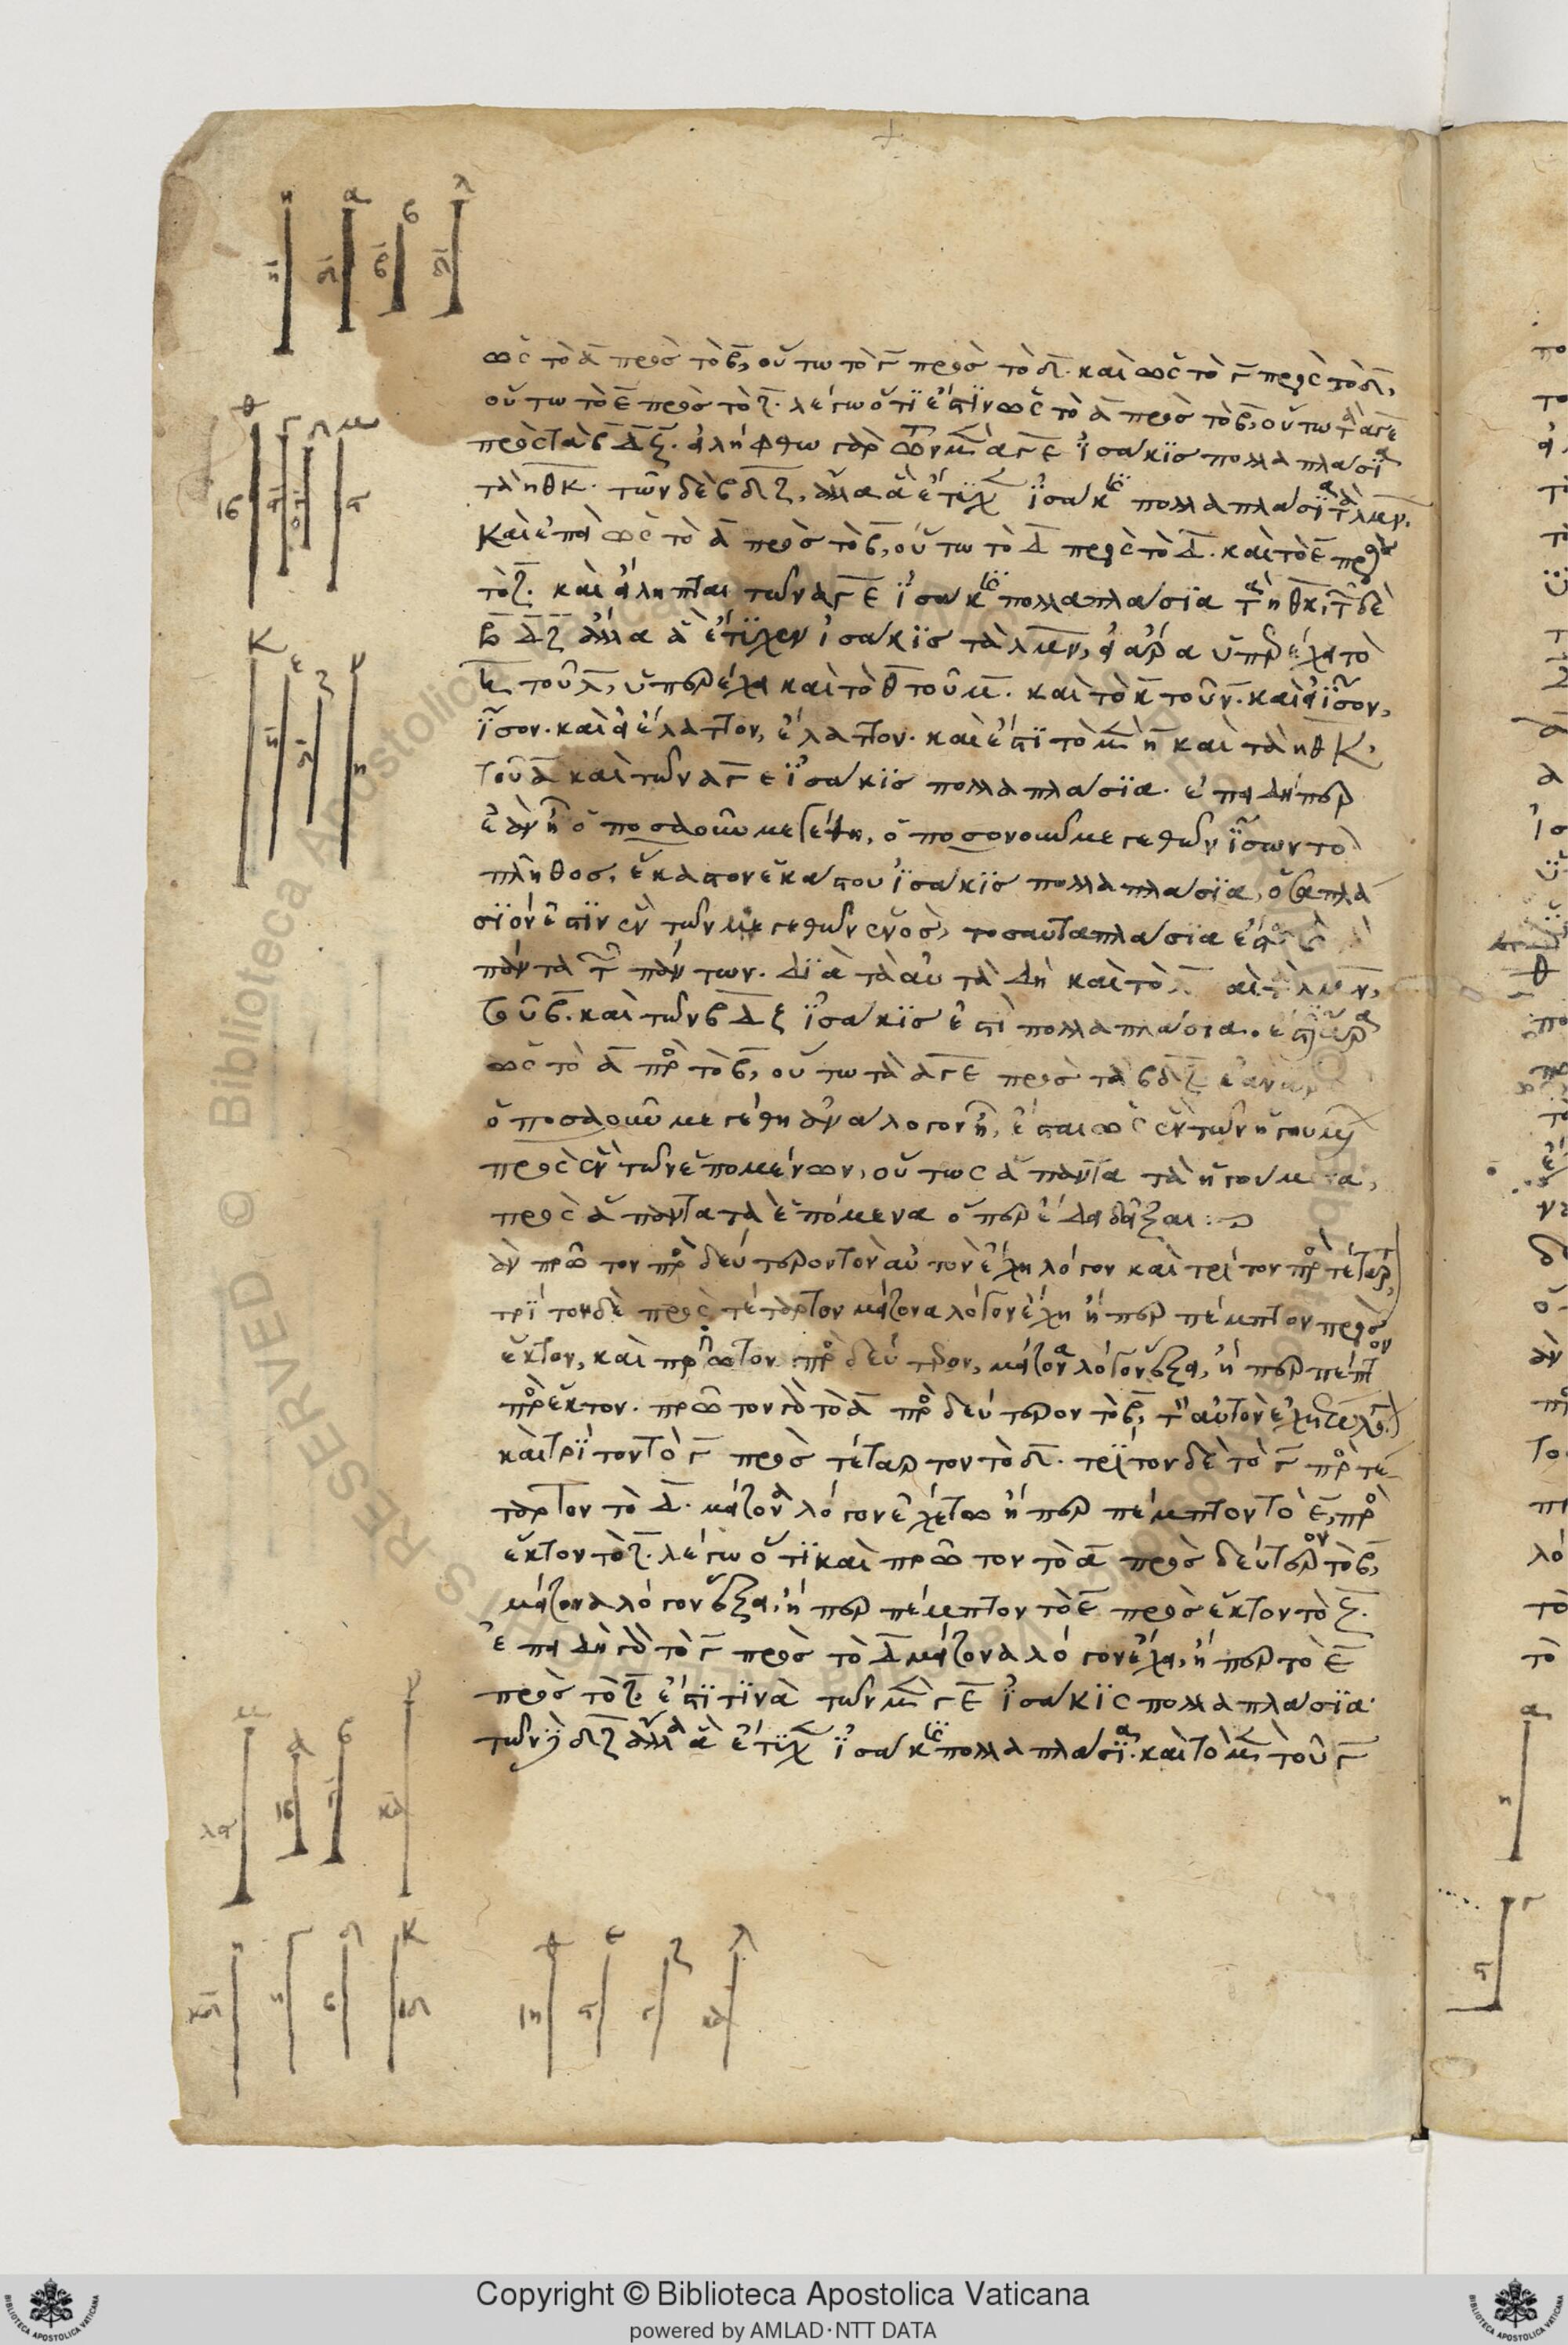 ὡς τὸ α πρὸς τὸ β, οὕτω τὸ γ πρὸς τὸ δ. καὶ ὡς τὸ γ πρὸς τὸ δ,
οὕτω τὸ ε πρὸς τὸ ζ. λέγω ὅτι ἐστὶν ὡς τὸ α πρὸς τὸ β, οὕτω τὰ αγε
πρὸς τὰ βδζ. εἰλήφθω γὰρ τῶν μὲν αγε ἰσάκις πολλαπλάσια
τὰ ηθκ. τῶν δὲ βδζ, ἄλλα ἃ ἔτυχ ἰσάκις πολλαπλάσια τὰ λμν.
καὶ ἐπεὶ ὡς τὸ α πρὸς τὸ β, οὕτω τὸ γ πρὸς τὸ δ. καὶ τὸ ε πρὸς
τὸ ζ. καὶ εἴληπται τῶν αγε ἰσάκις πολλαπλάσια τὰ ηθκ, τῶν δὲ
βδζ ἄλλα ἃ ἔτυχεν ἰσάκις τὰ λμν, εἰ ἄρα ὑπερέχει τὸ
η τοῦ λ, ὑπερέχει καὶ τὸ θ τοῦ μ. καὶ τὸ κ τοῦ ν. καὶ εἰ ἴσον,
ἴσον. καὶ εἰ ἔλαττον, ἔλαττον. καὶ ἔστι τὸ μὲν η καὶ τὰ ηθκ,
τοῦ α καὶ τῶν αγε ἰσάκις πολλαπλάσια. ἐπειδήπερ
ἐὰν ᾖ ὁποσαοῦν μεγέθη, ὁποσονοῦν μεγεθῶν ἴσων τὸ
πλῆθος, ἕκαστον ἑκάστου ἰσάκις πολλαπλάσια, ὁσαπλά
σιόν ἐστιν ἓν τῶν μεγεθῶν ἑνὸς, τοσαυταπλάσια ἔσται
πάντα τῶν πάντων. διὰ τὰ αὐτὰ δὴ καὶ τὸ λ καὶ τὰ λμν,
τοῦ β. καὶ τῶν βδζ ἰσάκις ἐστὶ πολλαπλάσια. ἔστιν ἄρα
ὡς τὸ α πρὸς τὸ β, οὕτω τὰ αγε πρὸς τὰ βδζ ἐὰν ἄρα
ὁποσαοῦν μεγέθη ἀνάλογον ᾖ, ἔσται ὡς ἓν τῶν ἡγουμ
πρὸς ἓν τῶν ἑπομένων, οὕτως ἅπαντα τὰ ἡγούμενα,
πρὸς ἅπαντα τὰ ἑπόμενα ὅπερ ἔδει δεῖξαι :
ἐὰν πρῶτον πρὸς δεύτερον τὸν αὐτὸν ἔχη λόγον καὶ τρίτον πρὸς τέταρ,
τρίτον δὲ πρὸς τέταρτον μείζονα λόγον ἔχη ἤπερ πέμπτον πρὸς
ἕκτον, καὶ πρῶτον πρὸς δεύτερον, μείζονα λόγον ἕξει, ἤπερ πέμπτον
πρὸς ἕκτον. πρῶτον γὰρ τὸ α πρὸς δεύτερον τὸ β, τὸν αὐτὸν ἐχέτω λόγον
καὶ τρίτον τὸ γ πρὸς τέταρτον τὸ δ. τρίτον δὲ τὸ γ πρὸς τέ
ταρτον τὸ δ. μείζονα λόγον ἐχέτω ἤπερ πέμπτον τὸ ε, πρὸς
ἕκτον τὸ ζ. λέγω ὅτι καὶ πρῶτον τὸ α πρὸς δεύτερον τὸ β,
μείζονα λόγον ἕξει, ἤπερ πέμπτον τὸ ε πρὸς ἕκτον τὸ ζ.
ἐπειδὴ γὰρ τὸ γ πρὸς τὸ δ μείζονα λόγον ἔχει, ἤπερ τὸ ε
πρὸς τὸ ζ. ἔστι τινὰ τῶν μὲν γε ἰσάκις πολλαπλάσια.
τῶν δὲ δζ ἄλλα ἃ ἔτυχ ἰσάκις πολλαπλάσια. καὶ τὸ μὲν τοῦ γ
Copyright © Biblioteca Apostolica Vaticana
powered by AMLAD·NTT DATA